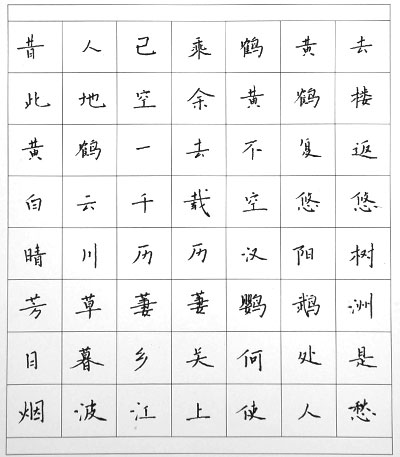 昔人已乘鹤黄去
此地空余黄鹤楼
黄鹤一去不复返
白云千载空悠悠
晴川历历汉阳树
芳草萋萋鹦鹉洲
日暮乡关何处是
烟波江上使人愁